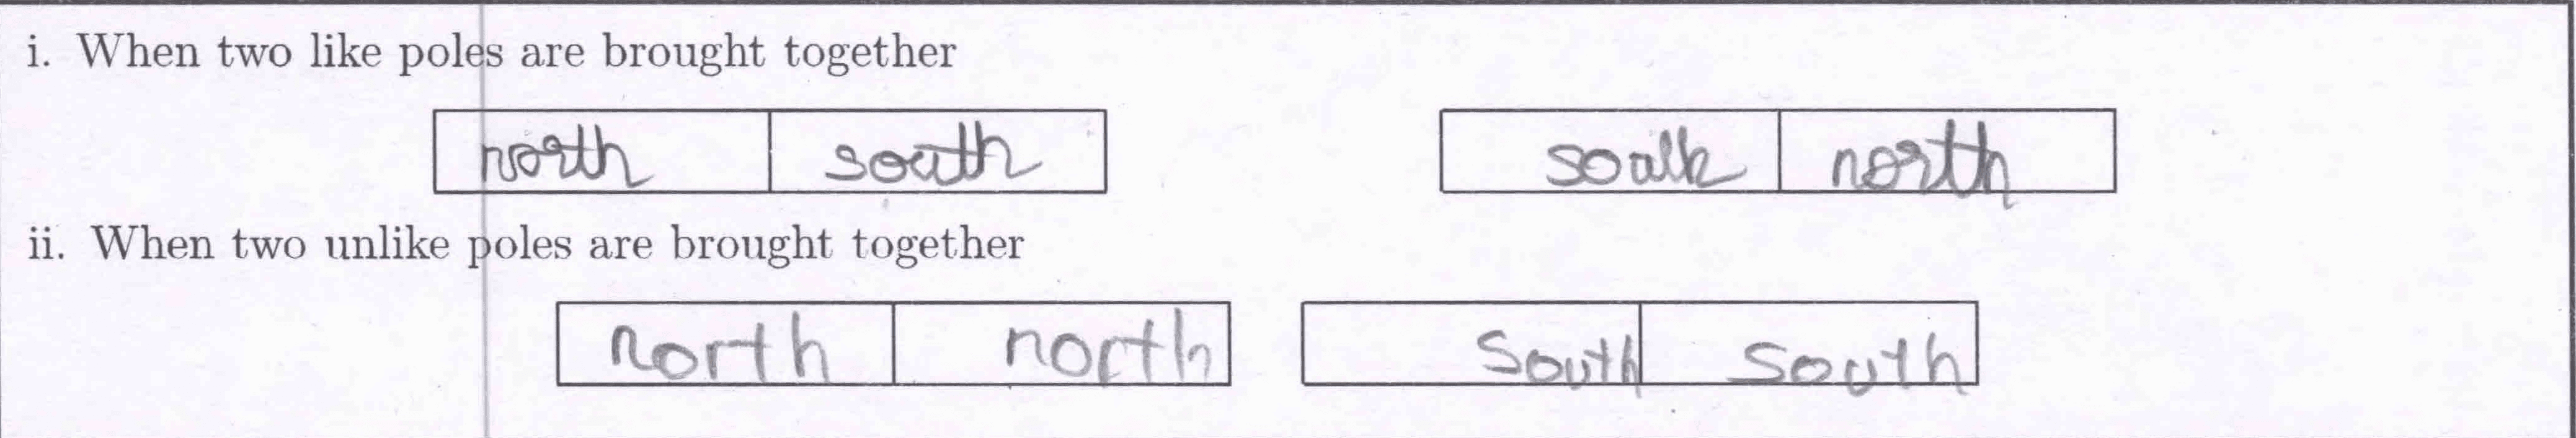 i. When two like poles are brought together
north south south north
ii. When two unlike poles are brought together
north north south south